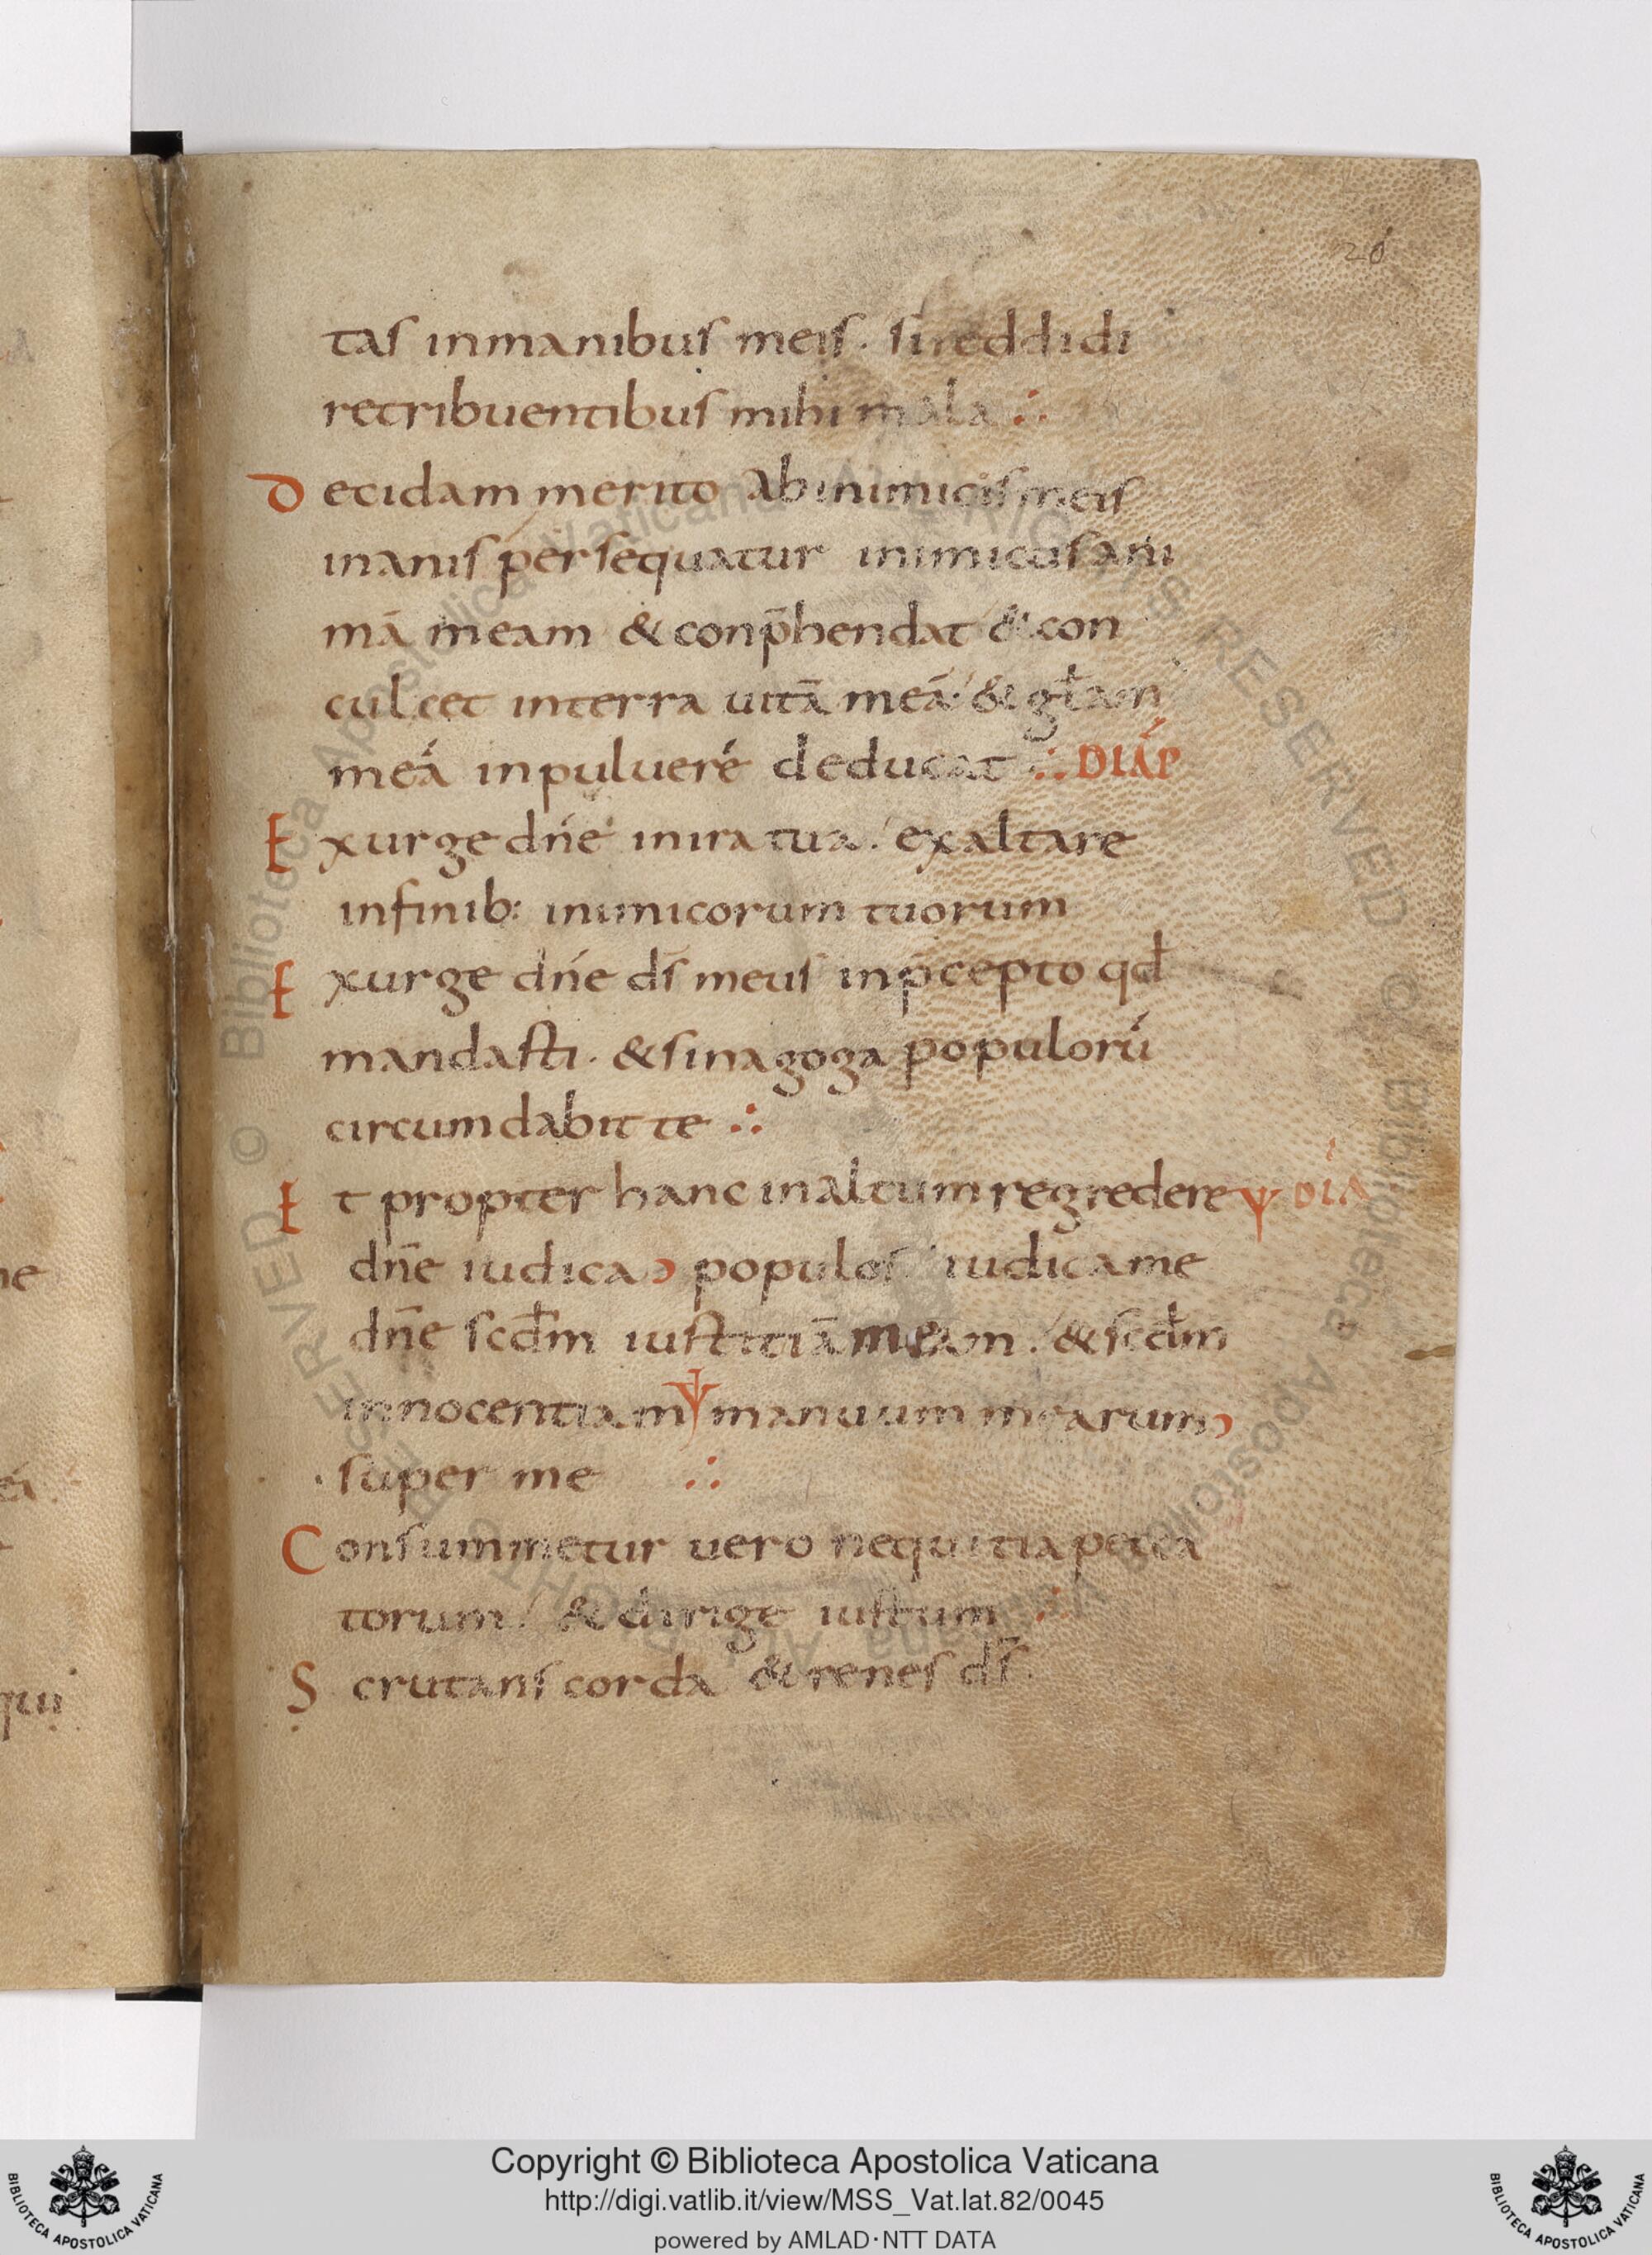 20
tas inmanibus meis. si reddidi
retribuentibus mihi mala ∴
Decidam merito ab inimicis meis
inanis persequatur inimicus ani
mā meam & conp̄hendat & con
culcet interra uitā meā & głam
meā inpuluere deducat ∴ DIAP
Exurge dn̄e inira tua. exaltare
infinib: inimicorum tuorum
Exurge dn̄e ds̄ meus inp̄cepto qđ
mandasti. & sinagoga populorū
circumdabit te ∴
Et propter hanc inaltum regredere ψ DIA
dn̄e iudica populos iudica me
dn̄e scđm iustitiā meam. & scđm
innocentiam ψ manuum mearum
super me ∴
Consummetur uero nequitia pecca
torum. & dirige iustum ∴
Scrutans corda & renes ds̄.
ne
qui
Copyright © Biblioteca Apostolica Vaticana
http://digi.vatlib.it/view/MSS_Vat.lat.82/0045
powered by AMLAD·NTT DATA
BIBLIOTECA APOSTOLICA VATICANA
BIBLIOTECA APOSTOLICA VATICANA